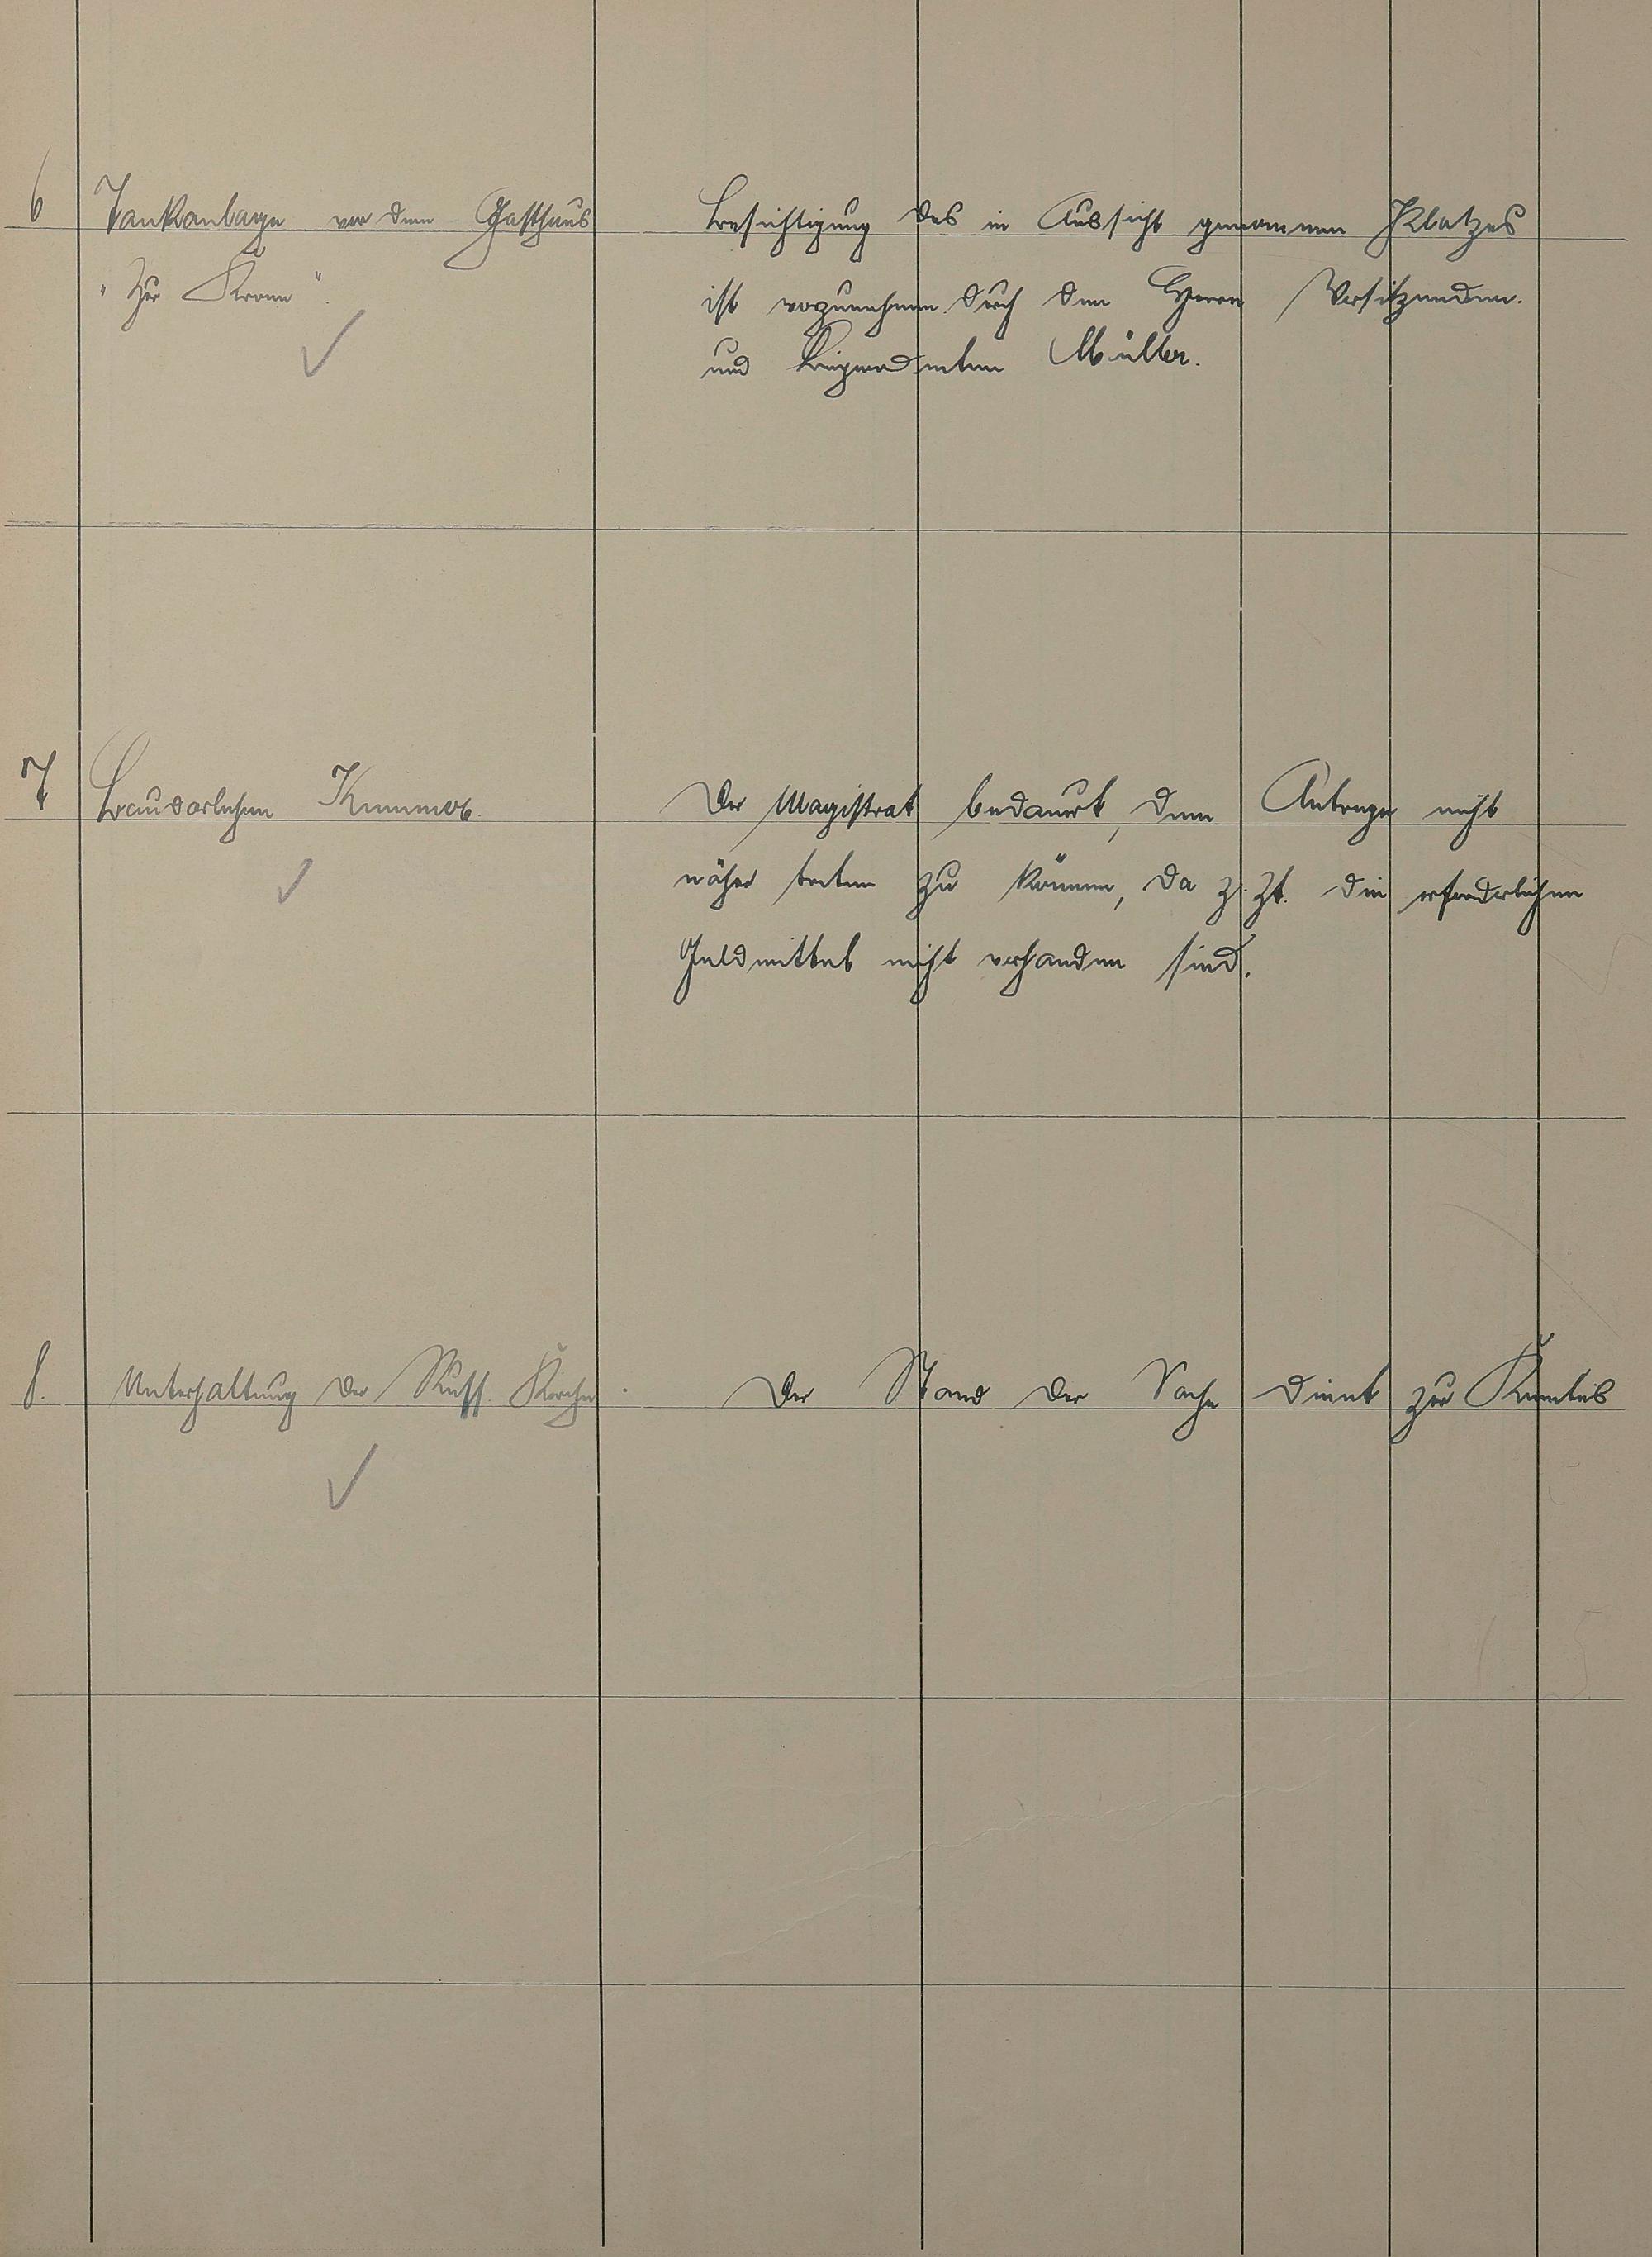 6 Tankanlage vor dem Gasthaus
"Zur Krone".
Besichtigung des in Aussicht genommen Platzes
ist vorzunehmen durch den Herrn Vorsitzenden.
und Beigeordneten Müller.
7 Baudarlehen
Der Magistrat bedauert, dem Antrage nicht
näher treten zu können, da z. Zt. die erforderlichen
Geldmittel nicht vorhanden sind.
8. Unterhaltung der Russ. Kirche.
Der Stand der Sache dient zur Kenntnis